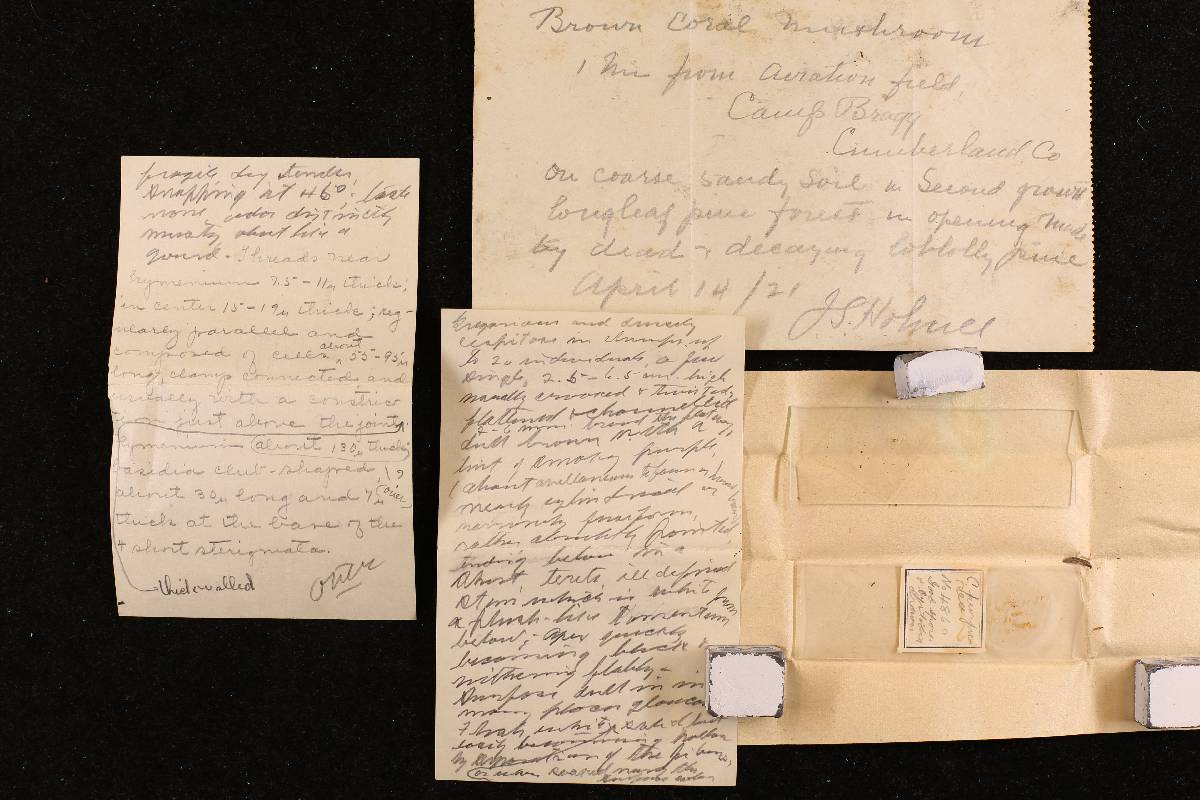 Brown Coral Mushroom
1 Mi from Aviation field,
Camp Bragg
Cumberland Co
On coarse sandy soil in second growth
longleaf pine forest in opening made
by dead & decaying loblolly pine
April 14/21
J.S. Holmes
fragile dry tender,
snapping at 45°; taste
none odor distinctly
musty about like a
gourd. Threads near
hymenium 7.5-11µ thick;
in center 15-19µ thick; reg-
ularly parallel and
composed of cells about 55-95µ
long, clamp connected and
usually with a constric
just above the joint.
Hymenium about 130µ thick;
basidia club-shaped,
about 30µ long and 7µ
thick at the base of the
4 short sterigmata.
thick walled
over
Gregarious and densely
cespitose in clumps of
to 20 individuals, a few
simple, 2.5-6.5 cm. high
usually crooked & twisted,
flattened & channelled
mm. broad
dull brown with a
tint of smoky purple,
(about avellaneous to fawn
nearly cylindrical or
narrowly fusiform,
rather abruptly pointed
ending below in a
short terete, ill defined
stem which is white from
a plush-like tomentum
below; apex quickly
becoming black &
withering flabby-
Surface dull in in
many places
Flesh white solid but
easily becoming hollow
by separation of the fibers,
No 4860